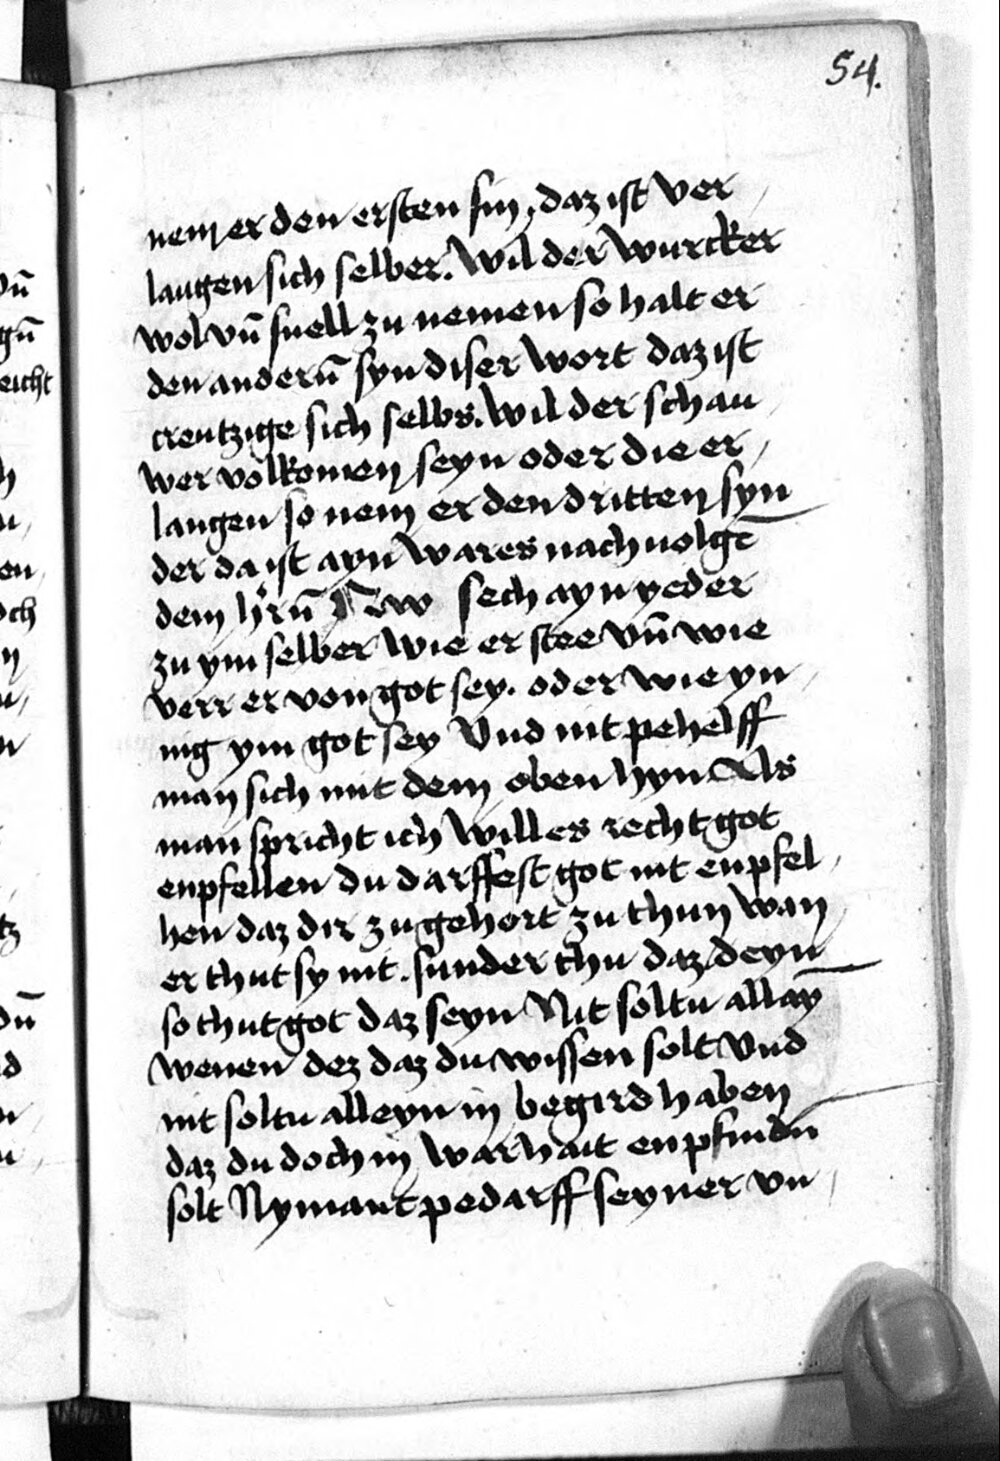 54.
nem er den ersten sin, daz ist ver
laugen sich selber. Wil der wurcker
wol vn̄ snell zu nemen so halt er
den anderū syn diser wort daz ist
creutzige sich selbs. Wil der schau
wer volkomen seyn oder die er
langen so nem er den dritten syn
der da ist ayn wares nachuolgē
dem h'rn̄ sech ayn yeder
zu ym selber wie er stee vn̄ wie
verr er von got sey. oder wie yn
nig ym got sey Vnd nit pehelff
man sich mit dem oben hyn Als
man spricht ich will es recht got
enpfellen du darffest got nit enpfel
hen daz dir zu gehort zu thun wan
er thut sy nit. sunder thu daz deyn
so thut got daz seyn Nit soltu allay̅
wenen dez daz du wissen solt Vnd
nit soltu alleyn in begird haben
daz du doch in warhait enpfindn̄
solt Nymant pedarff seyner vn